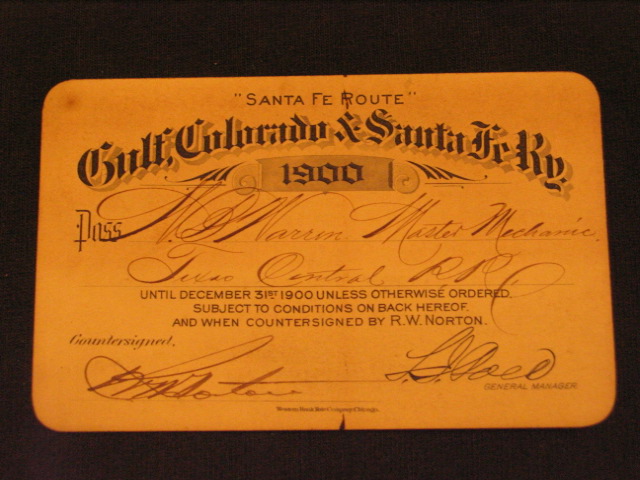 "SANTA FE ROUTE"
Gulf, Colorado & Santa Fe Ry.
1900
Pass W. B. Warren Master Mechanic.
Texas Central RR
UNTIL DECEMBER 31ST 1900 UNLESS OTHERWISE ORDERED,
SUBJECT TO CONDITIONS ON BACK HEREOF.
AND WHEN COUNTERSIGNED BY R.W. NORTON.
Countersigned,
R W Norton
GENERAL MANAGER.
Western Bank Note Company Chicago.